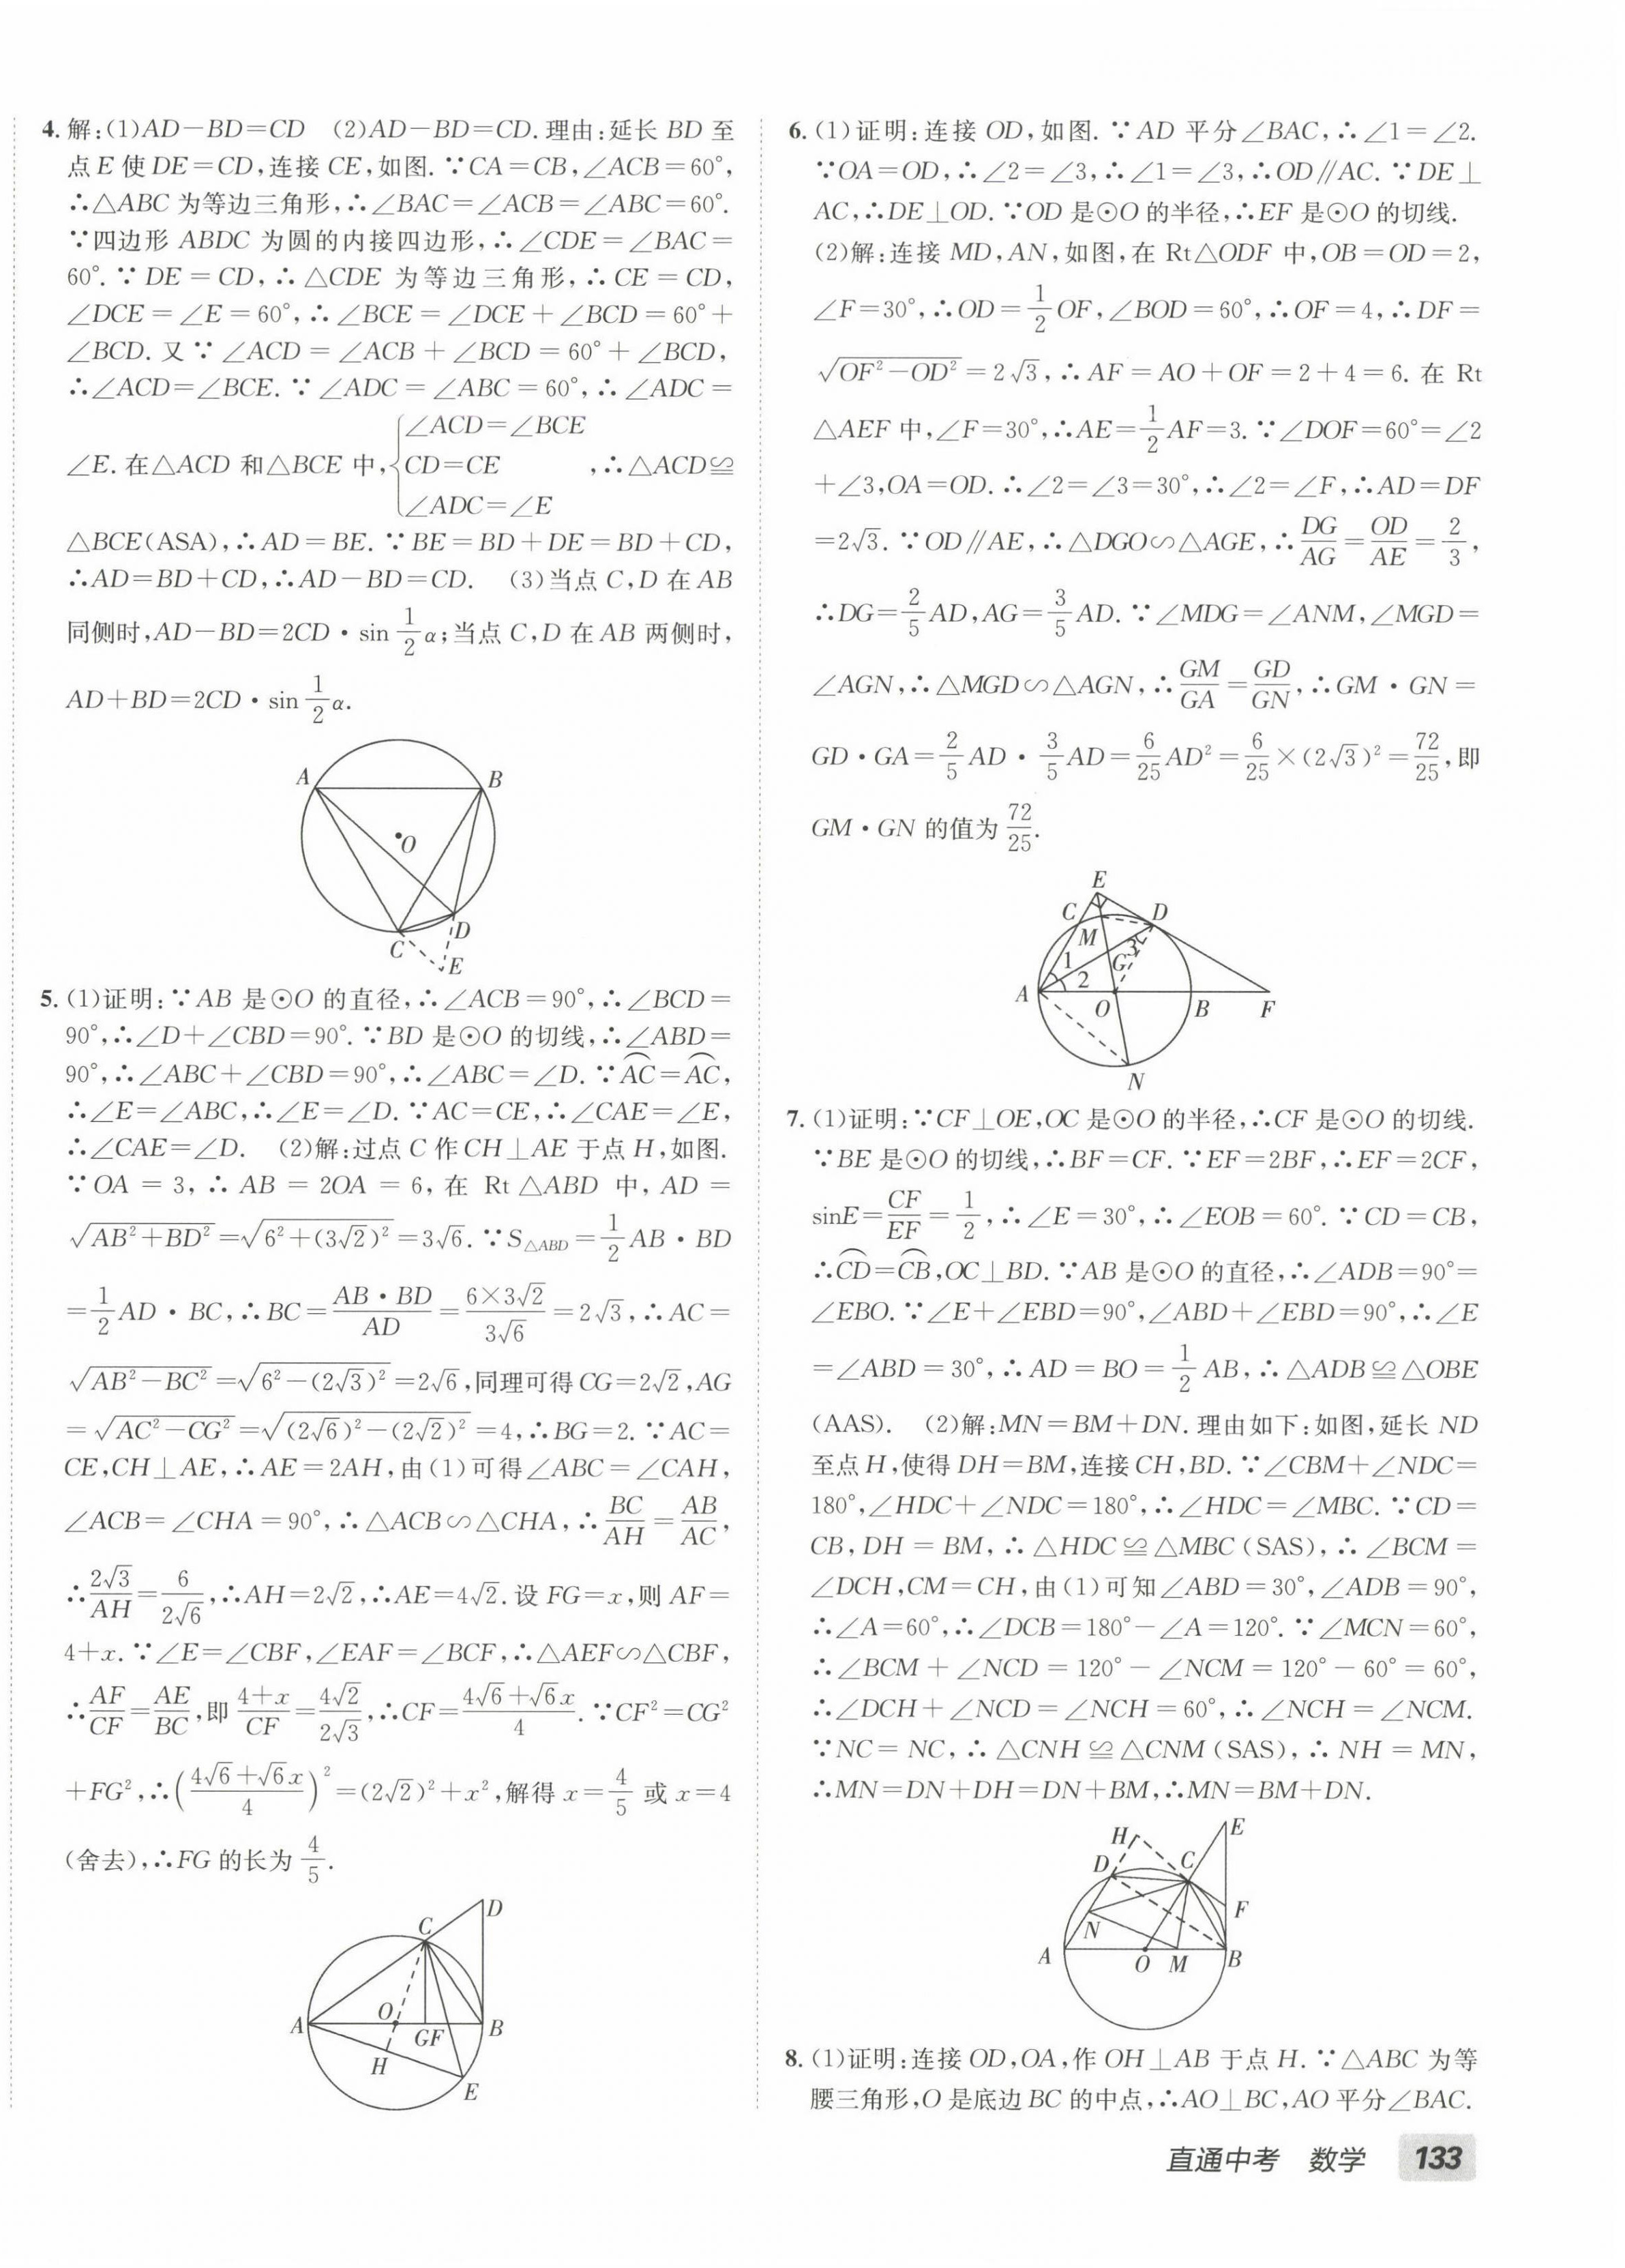 4. 解:(1)AD－BD＝CD　(2)AD－BD＝CD. 理由:延长 BD 至
点 E 使 DE＝CD,连接 CE,如图. ∵CA＝CB,∠ACB＝60°,
∴△ABC 为等边三角形,∴∠BAC＝∠ACB＝∠ABC＝60°.
∵四边形 ABDC 为圆的内接四边形,∴∠CDE＝∠BAC＝
60°. ∵ DE＝CD, ∴ △CDE 为等边三角形, ∴ CE＝CD,
∠DCE＝∠E＝60°,∴∠BCE＝∠DCE＋∠BCD＝60°＋
∠BCD. 又∵ ∠ACD＝∠ACB＋∠BCD＝60°＋∠BCD,
∴∠ACD＝∠BCE. ∵∠ADC＝∠ABC＝60°,∴∠ADC＝
∠E. 在△ACD 和△BCE 中,{∠ACD＝∠BCE CD＝CE ∠ADC＝∠E ,∴△ACD≌
△BCE(ASA),∴AD＝BE. ∵BE＝BD＋DE＝BD＋CD,
∴AD＝BD＋CD,∴AD－BD＝CD.　(3)当点 C,D 在 AB
同侧时,AD－BD＝2CD·sin 1/2 α;当点 C,D 在 AB 两侧时,
AD＋BD＝2CD·sin 1/2 α.
A
B
O
C
D
E
5. (1)证明:∵AB 是⊙O 的直径,∴∠ACB＝90°,∴∠BCD＝
90°,∴∠D＋∠CBD＝90°. ∵BD 是⊙O 的切线,∴∠ABD＝
90°,∴∠ABC＋∠CBD＝90°,∴∠ABC＝∠D. ∵⌒AC＝⌒AC,
∴∠E＝∠ABC,∴∠E＝∠D. ∵AC＝CE,∴∠CAE＝∠E,
∴∠CAE＝∠D.　(2)解:过点 C 作 CH⊥AE 于点 H,如图.
∵OA＝3,∴AB＝2OA＝6,在 Rt△ABD 中,AD＝
√(AB²＋BD²)＝√(6²＋(3√2)²)＝3√6. ∵S△ABD＝1/2 AB·BD
＝1/2 AD·BC,∴BC＝(AB·BD)/AD＝(6×3√2)/(3√6)＝2√3,∴AC＝
√(AB²－BC²)＝√(6²－(2√3)²)＝2√6,同理可得 CG＝2√2,AG
＝√(AC²－CG²)＝√((2√6)²－(2√2)²)＝4,∴BG＝2. ∵AC＝
CE,CH⊥AE,∴AE＝2AH,由(1)可得∠ABC＝∠CAH,
∠ACB＝∠CHA＝90°,∴△ACB∽△CHA,∴BC/AH＝AB/AC,
∴2√3/AH＝6/(2√6),∴AH＝2√2,∴AE＝4√2. 设 FG＝x,则 AF＝
4＋x. ∵∠E＝∠CBF,∠EAF＝∠BCF,∴△AEF∽△CBF,
∴AF/CF＝AE/BC,即 (4＋x)/CF＝4√2/(2√3),∴CF＝(4√6＋√6x)/4. ∵CF²＝CG²
＋FG²,∴((4√6＋√6x)/4)²＝(2√2)²＋x²,解得 x＝4/5 或 x＝4
(舍去),∴FG 的长为 4/5.
D
C
O
A
GF
B
H
E
6. (1)证明:连接 OD,如图. ∵AD 平分∠BAC,∴∠1＝∠2.
∵OA＝OD,∴∠2＝∠3,∴∠1＝∠3,∴OD∥AC. ∵DE⊥
AC,∴DE⊥OD. ∵OD 是⊙O 的半径,∴EF 是⊙O 的切线.
(2)解:连接 MD,AN,如图,在 Rt△ODF 中,OB＝OD＝2,
∠F＝30°,∴OD＝1/2 OF,∠BOD＝60°,∴OF＝4,∴DF＝
√(OF²－OD²)＝2√3,∴AF＝AO＋OF＝2＋4＝6. 在 Rt
△AEF 中,∠F＝30°,∴AE＝1/2 AF＝3. ∵∠DOF＝60°＝∠2
＋∠3,OA＝OD. ∴∠2＝∠3＝30°,∴∠2＝∠F,∴AD＝DF
＝2√3. ∵OD∥AE,∴△DGO∽△AGE,∴DG/AG＝OD/AE＝2/3,
∴DG＝2/5 AD,AG＝3/5 AD. ∵∠MDG＝∠ANM,∠MGD＝
∠AGN,∴△MGD∽△AGN,∴GM/GA＝GD/GN,∴GM·GN＝
GD·GA＝2/5 AD·3/5 AD＝6/25 AD²＝6/25×(2√3)²＝72/25,即
GM·GN 的值为 72/25.
E
C
D
M
3
1
G
2
A
O
B
F
N
7. (1)证明:∵CF⊥OE,OC 是⊙O 的半径,∴CF 是⊙O 的切线.
∵BE 是⊙O 的切线,∴BF＝CF. ∵EF＝2BF,∴EF＝2CF,
sinE＝CF/EF＝1/2,∴∠E＝30°,∴∠EOB＝60°. ∵CD＝CB,
∴⌒CD＝⌒CB,OC⊥BD. ∵AB 是⊙O 的直径,∴∠ADB＝90°＝
∠EBO. ∵∠E＋∠EBD＝90°,∠ABD＋∠EBD＝90°,∴∠E
＝∠ABD＝30°,∴AD＝BO＝1/2 AB,∴△ADB≌△OBE
(AAS).　(2)解:MN＝BM＋DN. 理由如下:如图,延长 ND
至点 H,使得 DH＝BM,连接 CH,BD. ∵∠CBM＋∠NDC＝
180°,∠HDC＋∠NDC＝180°,∴∠HDC＝∠MBC. ∵CD＝
CB,DH＝BM,∴△HDC≌△MBC(SAS),∴∠BCM＝
∠DCH,CM＝CH,由(1)可知∠ABD＝30°,∠ADB＝90°,
∴∠A＝60°,∴∠DCB＝180°－∠A＝120°. ∵∠MCN＝60°,
∴∠BCM＋∠NCD＝120°－∠NCM＝120°－60°＝60°,
∴∠DCH＋∠NCD＝∠NCH＝60°,∴∠NCH＝∠NCM.
∵NC＝NC,∴△CNH≌△CNM(SAS),∴NH＝MN,
∴MN＝DN＋DH＝DN＋BM,∴MN＝BM＋DN.
E
H
D
C
F
N
A
O
M
B
8. (1)证明:连接 OD,OA,作 OH⊥AB 于点 H. ∵△ABC 为等
腰三角形,O 是底边 BC 的中点,∴AO⊥BC,AO 平分∠BAC.
直通中考　数学　133